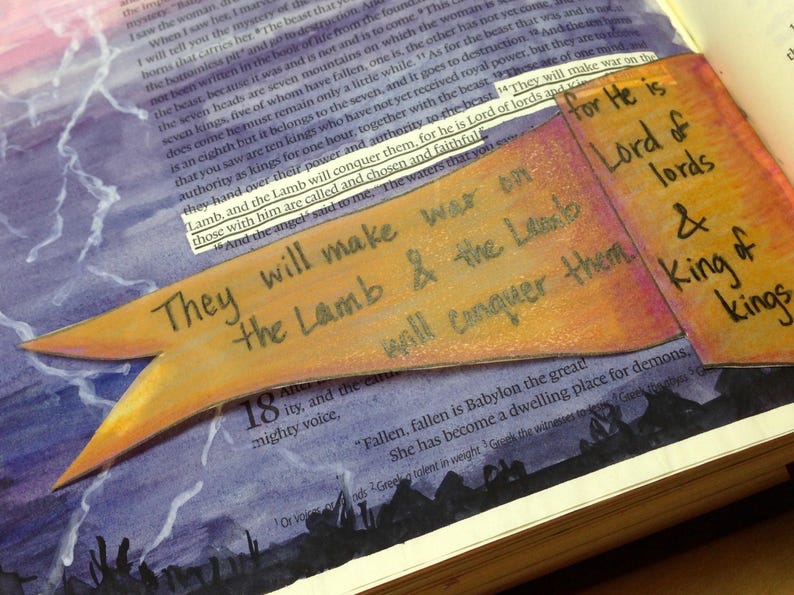 mystery:
I saw the woman,
When I saw her, I
I will tell you the mystery of the
horns that carries her. 8 The beast that you
the bottomless pit and go to destruction. And
not been written in the book of life from the
the beast, because it was and is not and is to come. 9 This
the seven heads are seven mountains on which the woman is
seven kings, five of whom have fallen, one is, the other has not yet come, and
does come he must remain only a little while. 11 As for the beast that was and is not,
is an eighth but it belongs to the seven, and it goes to destruction. 12 And the ten horns
that you saw are ten kings who have not yet received royal power, but they are to receive
authority as kings for one hour, together with the beast. 13 These are of one mind,
they hand over their power and authority to the beast. 14 They will make war on the
Lamb, and the Lamb will conquer them, for he is Lord of lords and King of
those with him are called and chosen and faithful."
15 And the angel said to me, "The waters that you
They will make war on
the Lamb & the Lamb
will conquer them
for He is
Lord of
lords
&
King of
kings
18 After
ity, and the earth
mighty voice,
"Fallen, fallen is Babylon the great!
She has become a dwelling place for demons,
1 Or voices, or 2 Greek a talent in weight 3 Greek the witnesses to 4 Greek the abyss 5